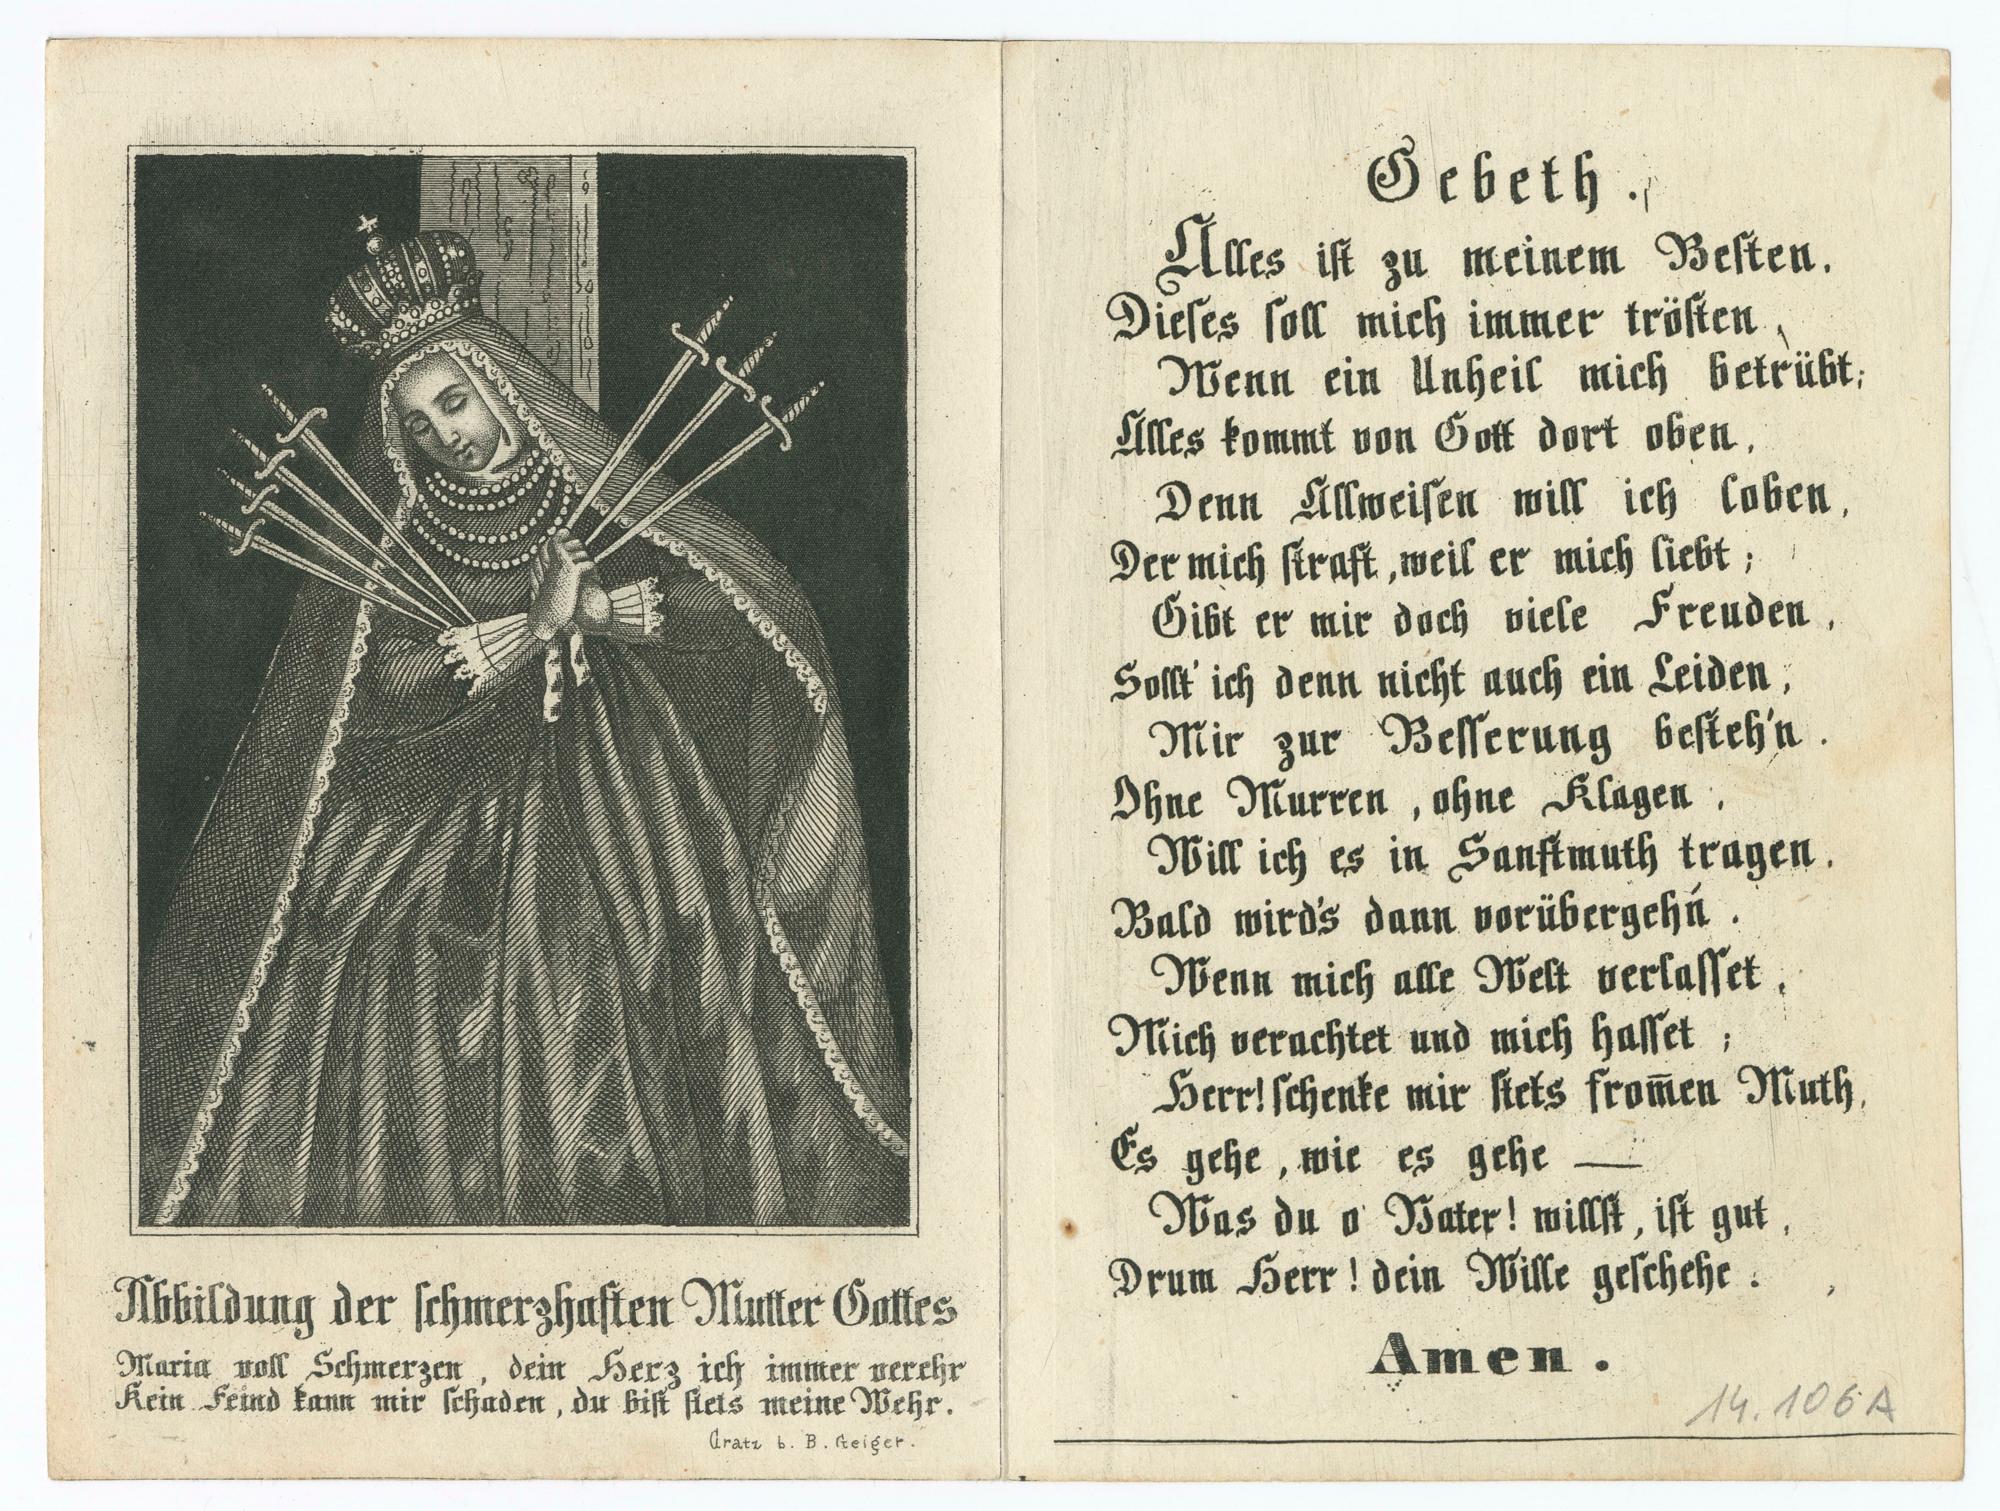 Abbildung der schmerzhaften Mutter Gottes
Maria voll Schmerzen, dein Herz ich immer verehr
Kein Feind kann mir schaden, du bist stets meine Wehr.
Gratz b. B. Geiger.
Gebeth.
Alles ist zu meinem Besten,
Dieses soll mich immer trösten,
Wenn ein Unheil mich betrübt;
Alles kommt von Gott dort oben,
Denn Allweisen will ich loben,
Der mich straft, weil er mich liebt;
Gibt er mir doch viele Freuden,
Sollt' ich denn nicht auch ein Leiden,
Mir zur Besserung besteh'n.
Ohne Murren, ohne Klagen,
Will ich es in Sanftmuth tragen,
Bald wird's dann vorübergeh'n.
Wenn mich alle Welt verlasset,
Mich verachtet und mich hasset;
Herr! schenke mir stets from̄en Muth,
Es gehe, wie es gehe —
Was du o Vater! willst, ist gut,
Drum Herr! dein Wille geschehe.
Amen.
14.106A